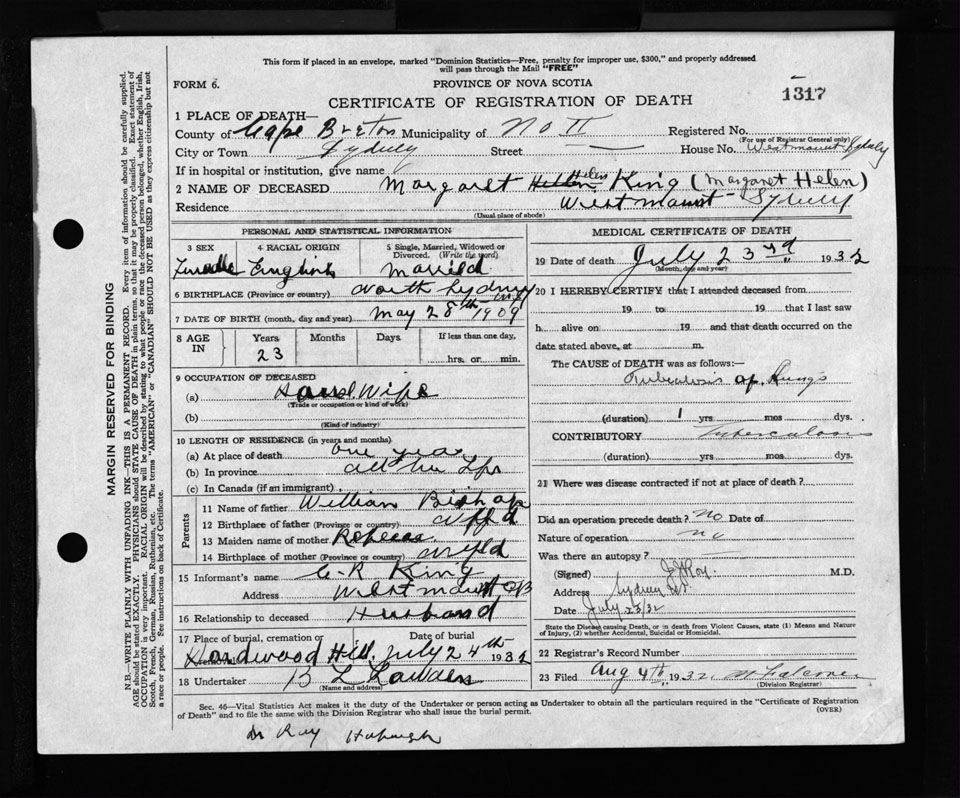 This form if placed in an envelope, marked "Dominion Statistics—Free, penalty for improper use, $300," and properly addressed
will pass through the Mail "FREE"
FORM 6.
PROVINCE OF NOVA SCOTIA
1317
CERTIFICATE OF REGISTRATION OF DEATH
1 PLACE OF DEATH—
County of Cape Breton Municipality of No II Registered No.
(For use of Registrar General only)
City or Town Sydney Street — House No. Westmount Sydney
If in hospital or institution, give name
2 NAME OF DECEASED Margaret Helen King (Margaret Helen)
Residence Westmount Sydney
(Usual place of abode)
PERSONAL AND STATISTICAL INFORMATION
3 SEX 4 RACIAL ORIGIN 5 Single, Married, Widowed or Divorced. (Write the word)
Female English Married
6 BIRTHPLACE (Province or country) North Sydney
7 DATE OF BIRTH (month, day and year) May 28th 1909
8 AGE IN Years Months Days If less than one day,
23 hrs. or min.
9 OCCUPATION OF DECEASED
(a) House Wife
(Trade or occupation or kind of work)
(b)
(Kind of industry)
10 LENGTH OF RESIDENCE (in years and months)
(a) At place of death one year
(b) In province all her life
(c) In Canada (if an immigrant)
Parents
11 Name of father William Bishop
12 Birthplace of father (Province or country) Nfld
13 Maiden name of mother Rebecca
14 Birthplace of mother (Province or country) Nfld
15 Informant's name C-R King
Address Westmount CB
16 Relationship to deceased Husband
17 Place of burial, cremation or removal Date of burial
Hardwood Hill July 24th 1932
18 Undertaker
(Name and address)
MEDICAL CERTIFICATE OF DEATH
19 Date of death July 23rd 1932
(Month, day and year)
20 I HEREBY CERTIFY that I attended deceased from
19 to 19 that I last saw
h alive on 19 and that death occurred on
date stated above, at m.
The CAUSE OF DEATH was as follows:—
of Lungs
(duration) 1 yrs mos dys.
CONTRIBUTORY Tuberculosis
(duration) yrs. mos. dys.
21 Where was disease contracted if not at place of death?
Did an operation precede death? No Date of
Nature of operation no
Was there an autopsy?
(Signed) Roy M.D.
Address Sydney NS
Date July 23/32
State the Disease causing Death, or in death from Violent Causes, state (1) Means and Nature
of Injury, (2) whether Accidental, Suicidal or Homicidal.
22 Registrar's Record Number
23 Filed Aug 4th 1932
(Division Registrar)
Sec. 46—Vital Statistics Act makes it the duty of the Undertaker or person acting as Undertaker to obtain all the particulars required in the "Certificate of Registration
of Death" and to file the same with the Division Registrar who shall issue the burial permit.
(OVER)
Dr Roy
MARGIN RESERVED FOR BINDING
N.B.—WRITE PLAINLY WITH UNFADING INK—THIS IS A PERMANENT RECORD. Every item of information should be carefully supplied.
AGE should be stated EXACTLY. PHYSICIANS should STATE CAUSE OF DEATH in plain terms, so that it may be properly classified. Exact statement of
OCCUPATION is very important. RACIAL ORIGIN will be described by stating to what people or race the deceased person belonged, whether English, Irish,
Scotch, French, German, Russian, Ruthenian, etc. The terms "AMERICAN" or "CANADIAN" SHOULD NOT BE USED as they express citizenship but not
a race or people. See instructions on back of Certificate.